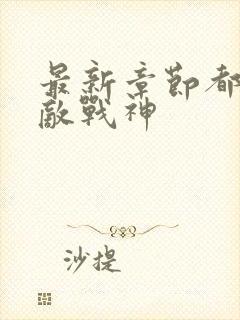 最新章節都
敵戰神
沙提